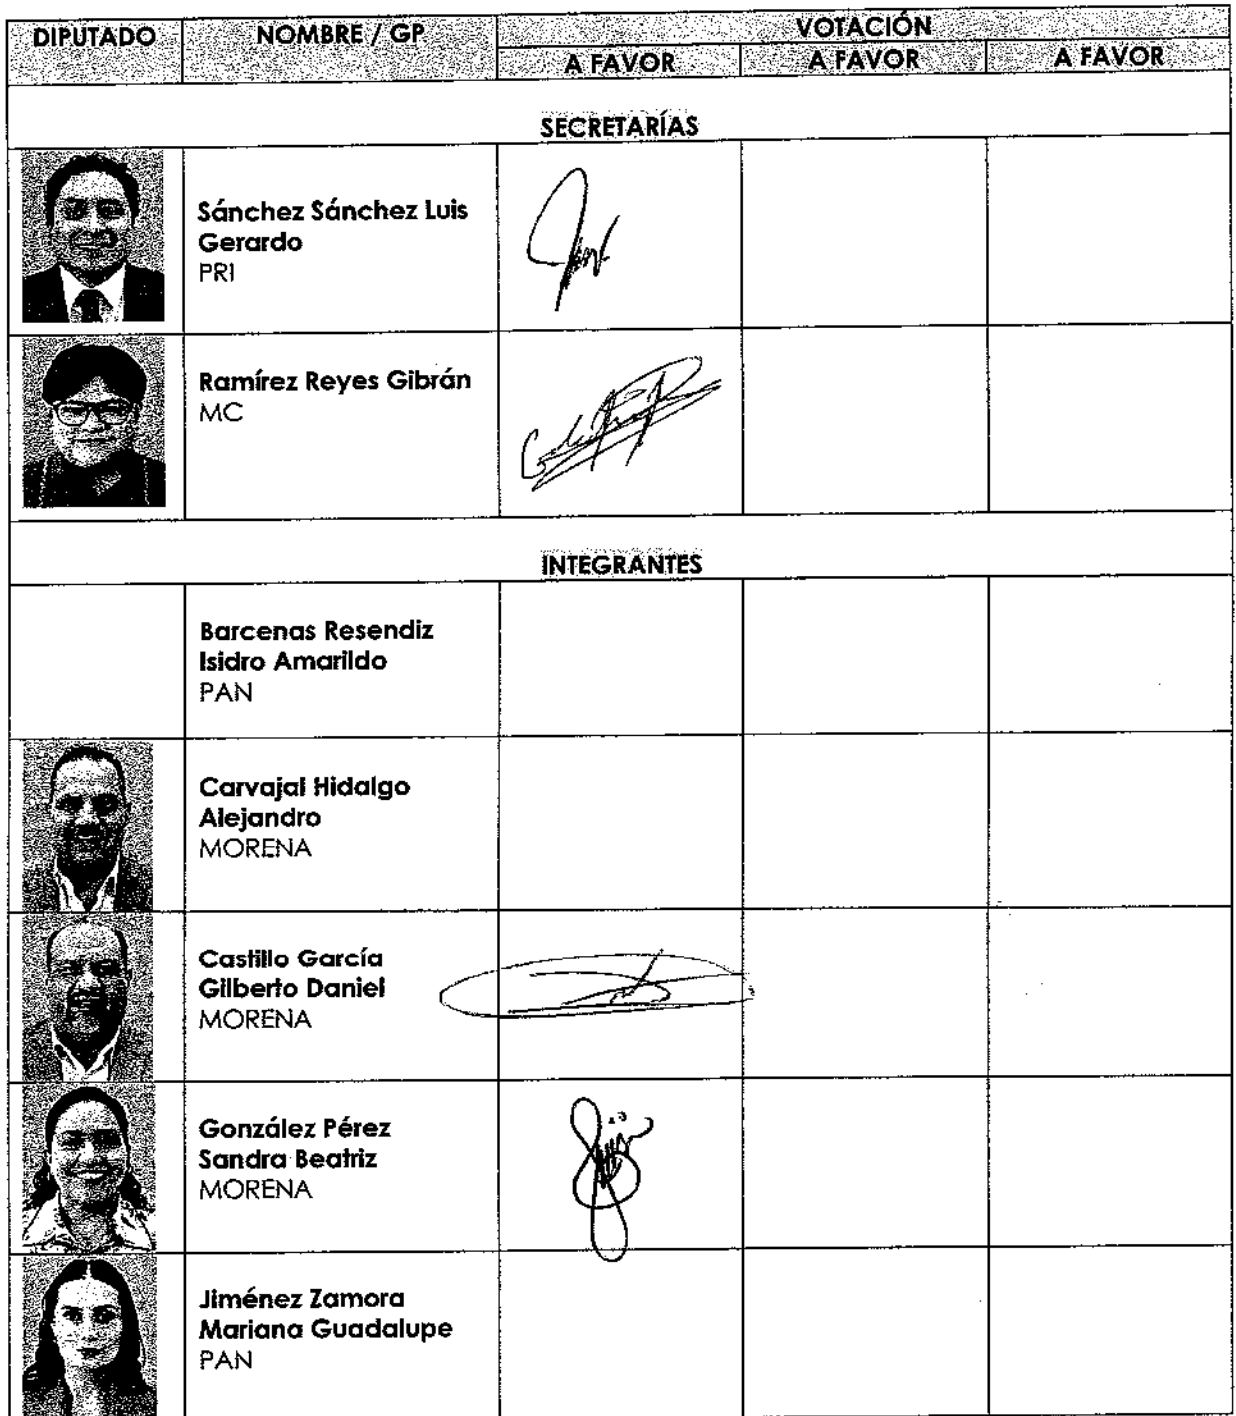 DIPUTADO NOMBRE / GP VOTACIÓN
A FAVOR A FAVOR A FAVOR
SECRETARÍAS
Sánchez Sánchez Luis
Gerardo
PRI
Ramírez Reyes Gibrán
MC
INTEGRANTES
Barcenas Resendiz
Isidro Amarildo
PAN
Carvajal Hidalgo
Alejandro
MORENA
Castillo García
Gilberto Daniel
MORENA
González Pérez
Sandra Beatriz
MORENA
Jiménez Zamora
Mariana Guadalupe
PAN